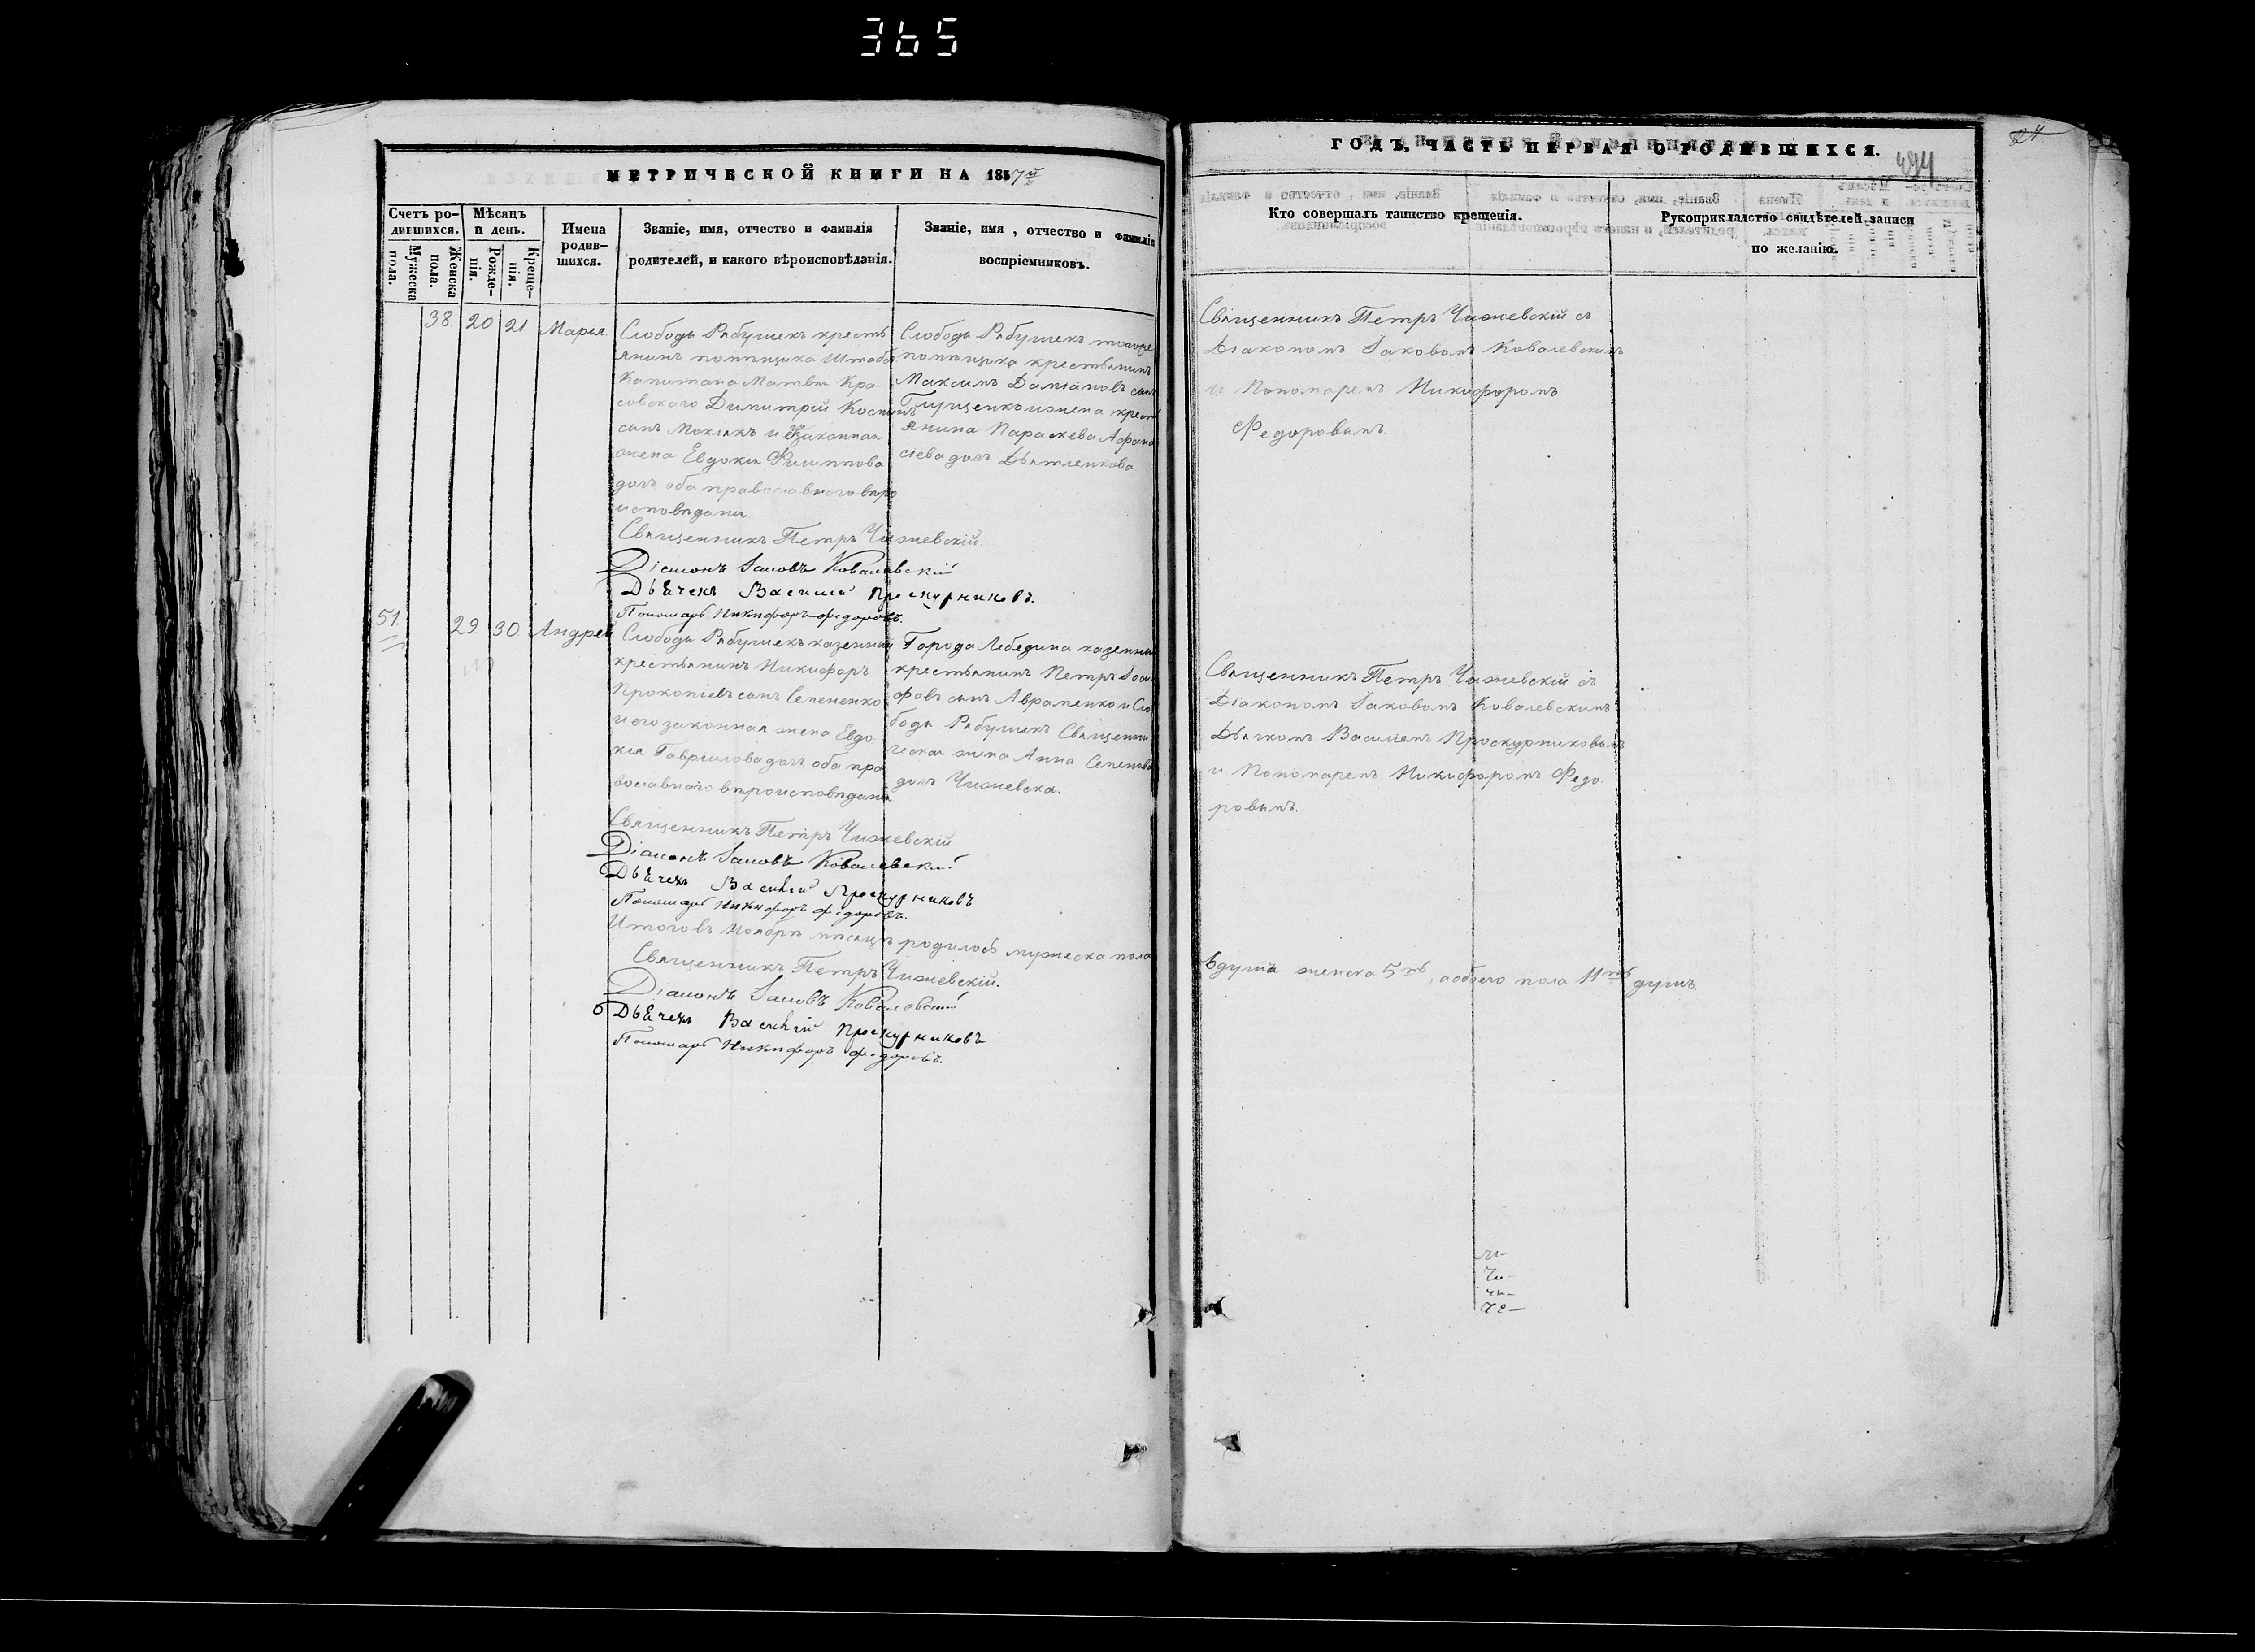 365
МЕТРИЧЕСКОЙ КНИГИ НА 1857й
Счетъ ро-
дившихся.
Мужеска
пола.
Женска
пола.
Мѣсяцъ
и день.
Рожде-
нія.
Креще-
нія.
Имена
родив-
шихся.
Званіе, имя, отчество и фамилія
родителей, и какого вѣроисповѣданія.
Званіе, имя, отчество и фамилія
воспріемниковъ.
38 20 21 Марья
Слободы Рябушекъ кресть
янинъ помѣщика Штабсъ
Капитана Матвѣя Кра-
совскаго Димитрій
сынъ и законная
жена Евдокія Филиппова
дочь оба православнаго вѣро
исповѣданія
Слободы Рябушекъ тогоже
помѣщика крестьянинъ
Максимъ Даміановъ сынъ
Глущенко и жена крестъ
янина Параскева Афана
сіева дочь
Священникъ Петръ Чижевскій.
Діаконъ Іаковъ Ковалевскій
Дьячекъ Василій Проскурниковъ.
Пономарь Никифоръ Федоровъ.
51. 29 30. Андрей
Слободы Рябушекъ казенный
крестьянинъ Никифоръ
Прокопіевъ сынъ Семененко
и его законная жена Евдо-
кія Гавріилова дочь оба пра
вославнаго вѣроисповѣданія.
Города Лебедина казенный
крестьянинъ Петръ Іоси
фовъ сынъ Авраменко и Сло
боды Рябушекъ Священни
ческая жена Анна Семенова
дочь Чижевска.
Священникъ Петръ Чижевскій
Діаконъ Іаковъ Ковалевскій
Дьячекъ Василій Проскурниковъ
Пономарь Никифоръ Федоровъ.
Итого въ Ноябрѣ мѣсяцѣ родилось мужеска пола
Священникъ Петръ Чижевскій.
Діаконъ Іаковъ Ковалевскій
Дьячекъ Василій Проскурниковъ
Пономарь Никифоръ Федоровъ.
ГОДЪ, ЧАСТЬ ПЕРВАЯ О РОДИВШИХСЯ.
494
27
Кто совершалъ таинство крещенія.
Рукоприкладство свидѣтелей записи
по желанію.
Священникъ Петръ Чижевскій съ
Діакономъ Іаковомъ Ковалевскимъ
и Пономаремъ Никифоромъ
Федоровымъ.
Священникъ Петръ Чижевскій съ
Діакономъ Іаковомъ Ковалевскимъ
Дьячкомъ Василіемъ Проскурниковымъ
и Пономаремъ Никифоромъ Федо-
ровымъ.
6 душъ женска 5ть, а обоего пола 11ть душъ.